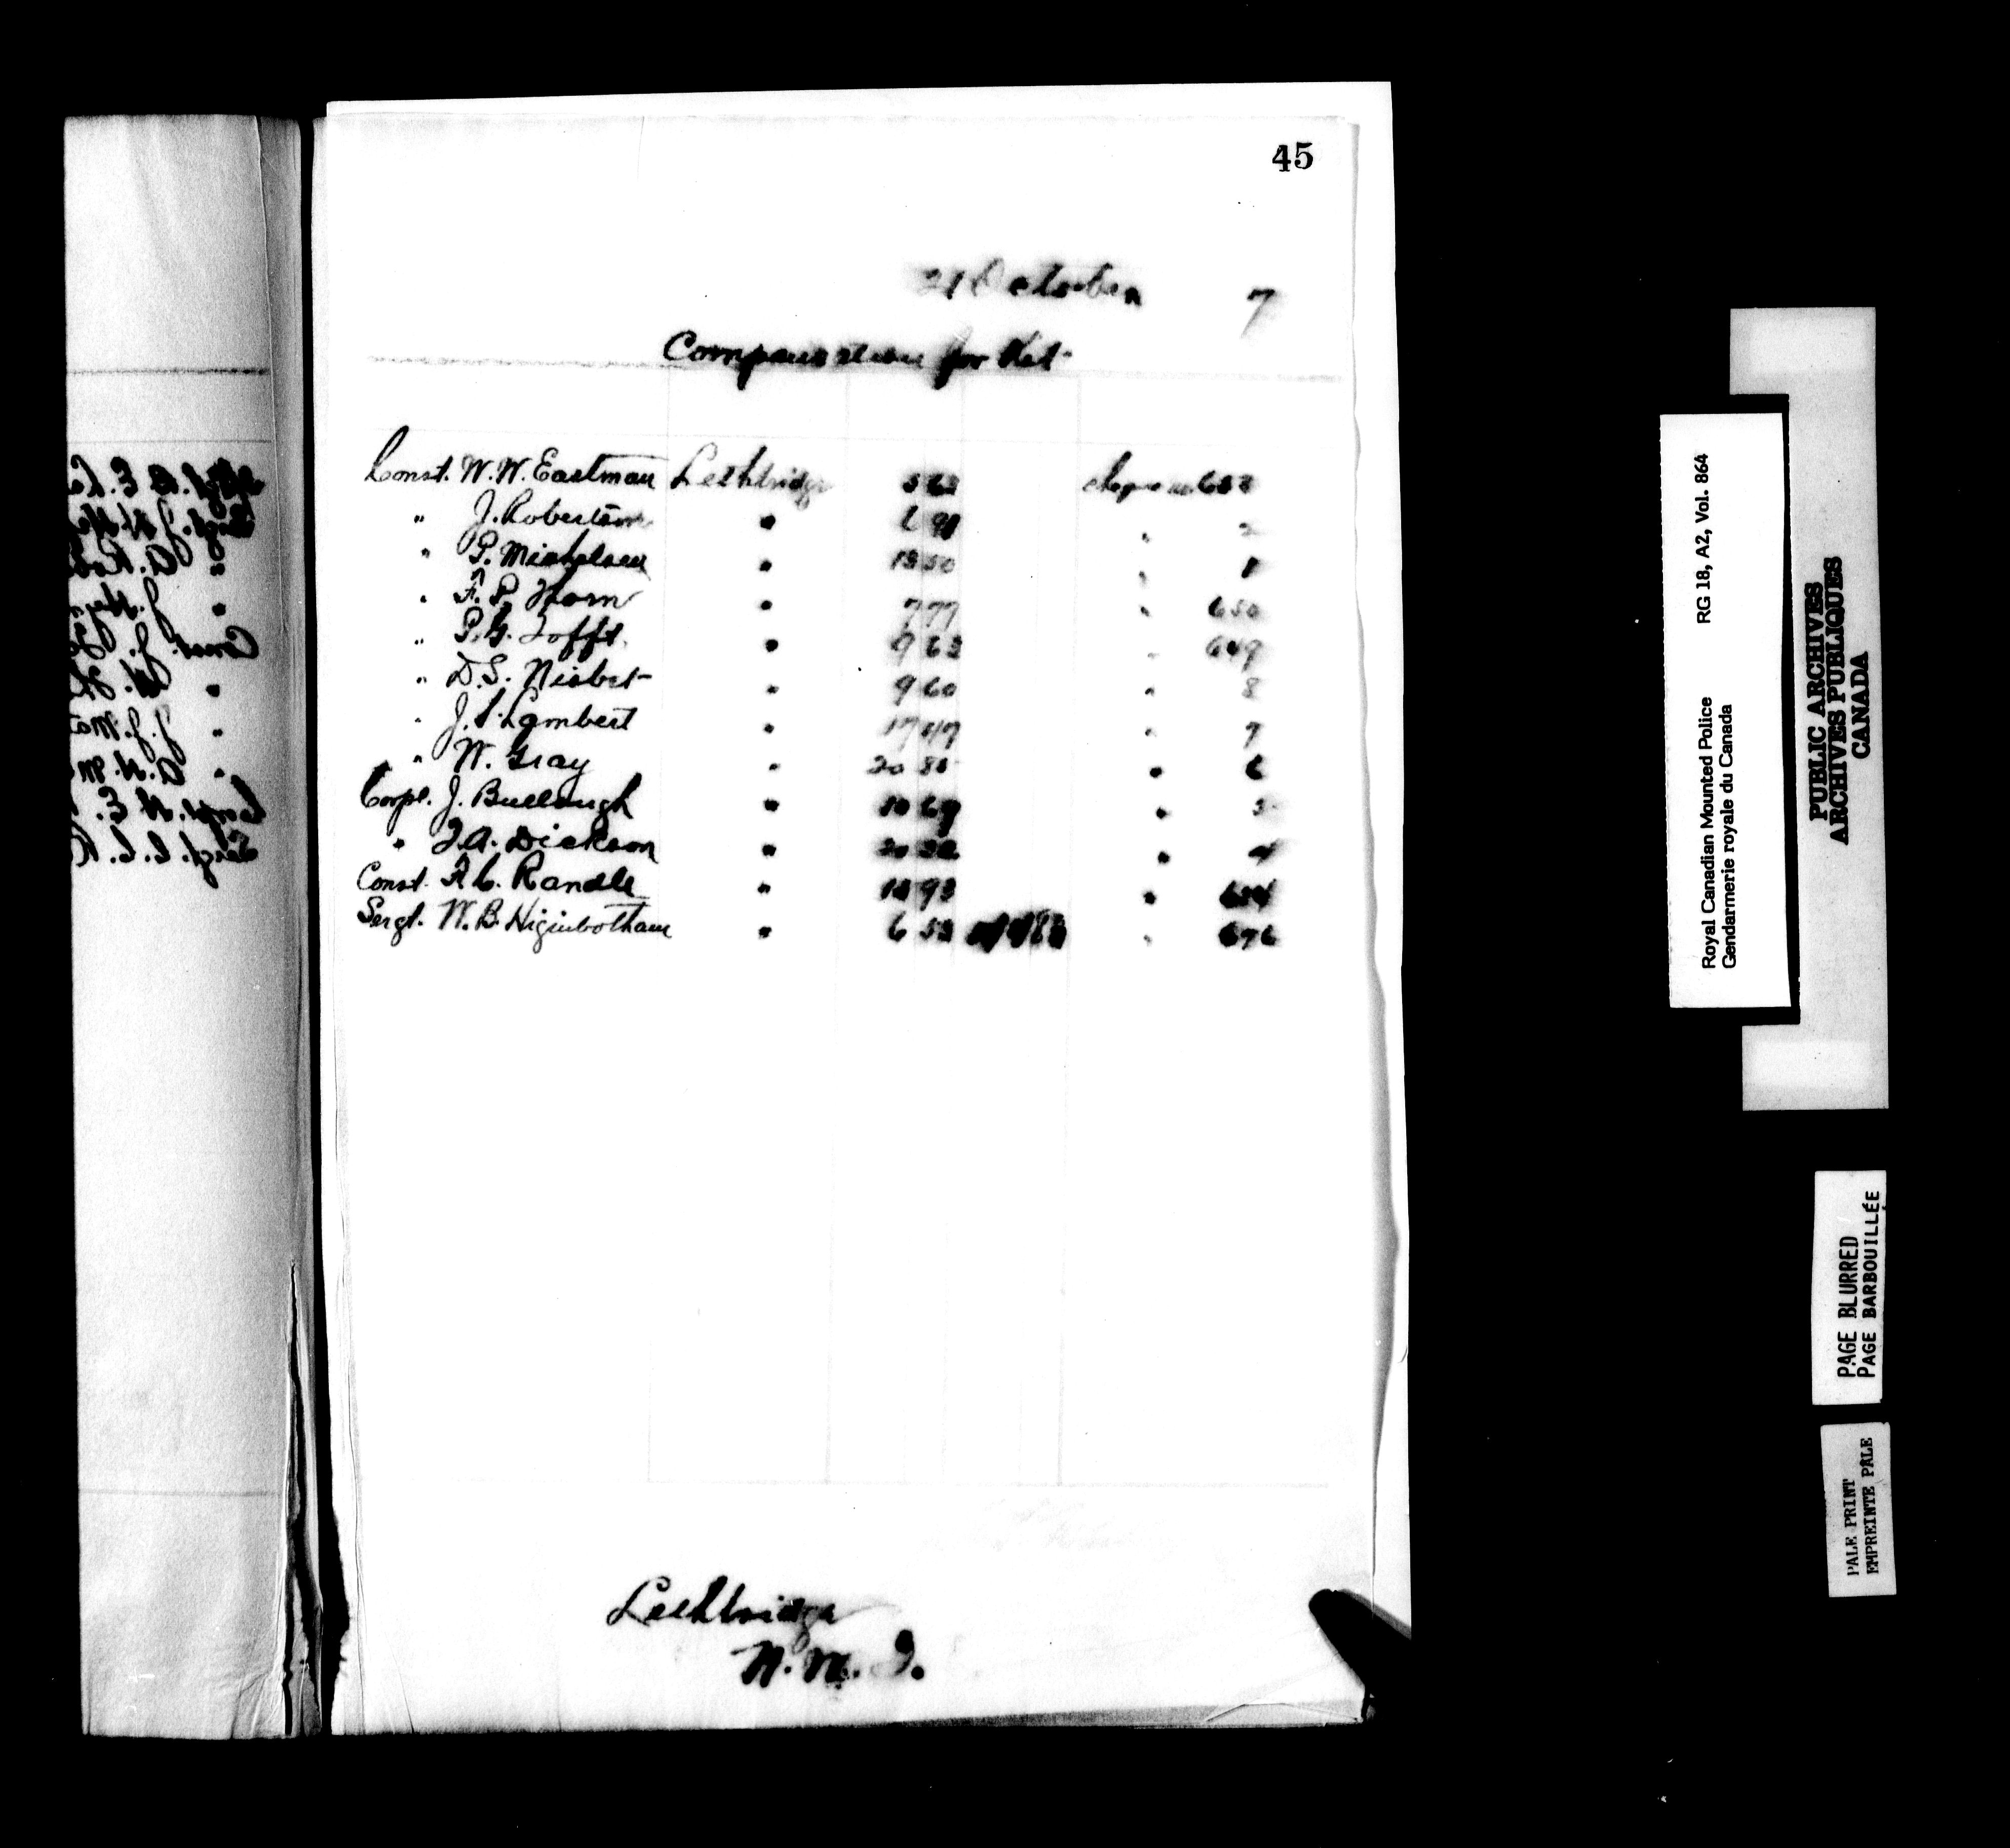 45
21 October 7
Compensation for Kit
Const. W. W. Eastman Lethbridge 5 62 cheque no. 653
" J. Robertson " " 2
" P. Mickelsen " 18 50 " 1
" F. P. Thorn " 7 77 " 650
" P. G. Tofft. " 9 63 " 649
" D. S. Nisbet " 9 60 " 8
" J. Lambert " 17 47 " 7
" W. Gray " 20 " 6
Corpl. J. Bullough " 10 69 " 5
" Dickson " " 4
Const. F. C. Randle " 18 93 " 654
Sergt. W. B. Higinbotham " 6 53 " 676
Lethbridge
N. W. T.
Royal Canadian Mounted Police RG 18, A2, Vol. 864
Gendarmerie royale du Canada
PUBLIC ARCHIVES
ARCHIVES PUBLIQUES
CANADA
PAGE BLURRED
PAGE BARBOUILLÉE
PALE PRINT
EMPREINTE PALE